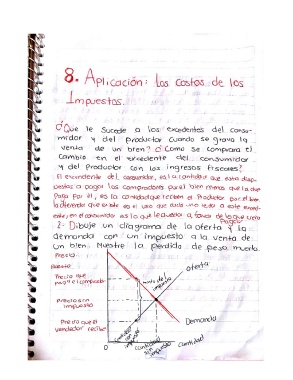 8. Aplicación: los costos de los
Impuestos.
¿Que le sucede a los excedentes del consu-
midor y del productor cuando se grava la
venta de un bien? ¿Como se compara el
cambio en el excedente del consumidor
y del Productor con los ingresos fiscales?
El excedente del consumidor, es la cantidad que esta disp-
uestos a pagar los compradores para bien menos que la que
Paga por él, es la cantidad que reciben el Productor por el bien
la diferencia que existe es el
2. Dibuje un diagrama de la oferta y la
demanda con un impuesto a la venta de
un bien. Muestre la perdida de peso muerto
Precio
Precio que
paga el comprador
Precio sin
impuesto
Precio que el
vendedor recibe
oferta
Demanda
Cantidad
con
impuesto
Cantidad
sin
impuesto
Cantidad